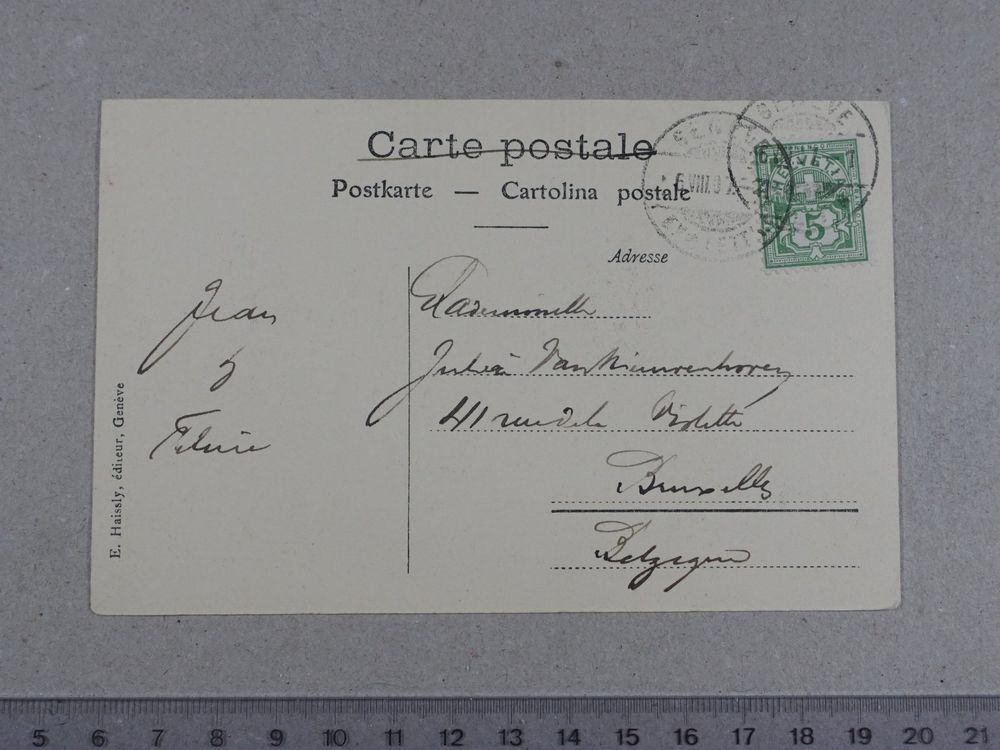 Carte postale
Postkarte — Cartolina postale
Adresse
GENÈVE
6.VIII.07
HELVETIA
5
Jean
&
Mademoiselle
Julia Van Nieuwenhoven
41 rue de la Violette
Bruxelles
Belgique
E. Haissly, éditeur, Genève
5 6 7 8 9 10 11 12 13 14 15 16 17 18 19 20 21